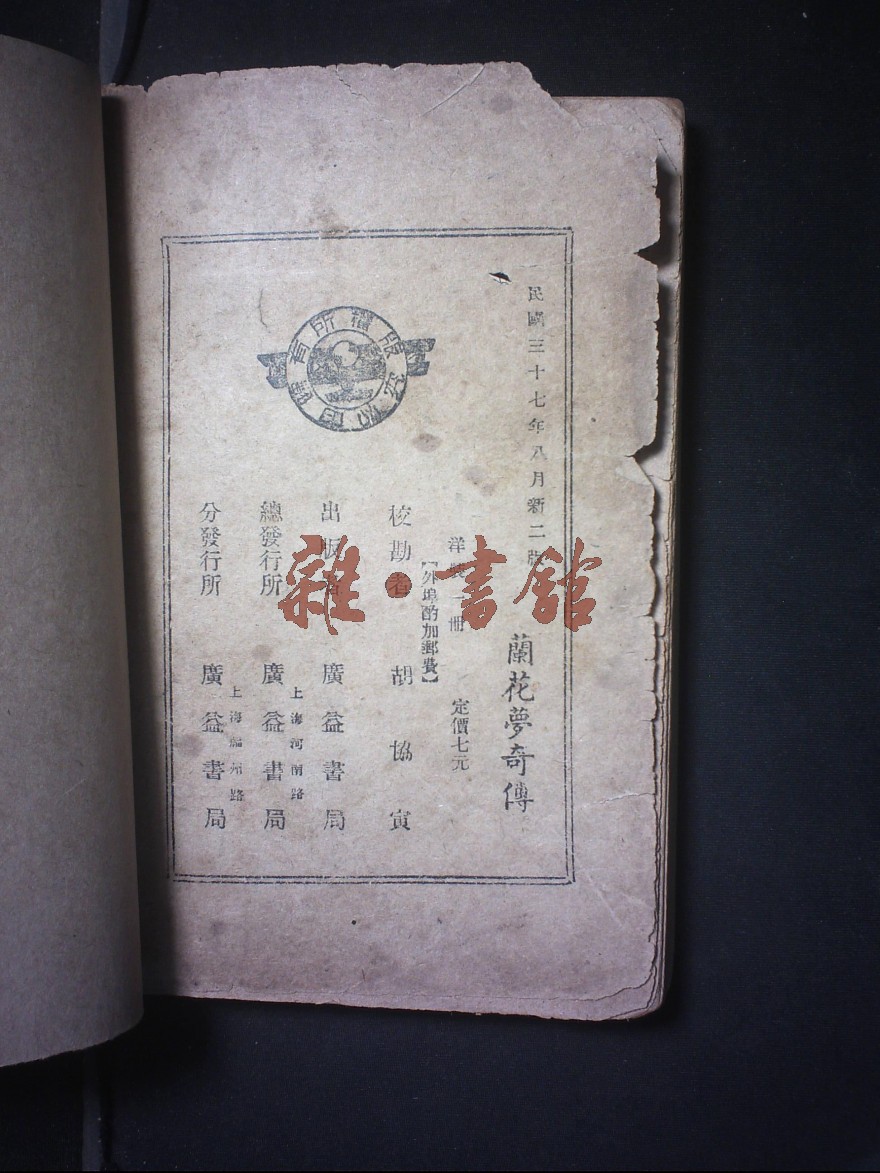 民國三十七年八月新二版
蘭花夢奇傳
洋裝一冊 定價七元
【外埠酌加郵費】
校勘者 胡協寅
出版者 廣益書局
上海河南路
總發行所 廣益書局
上海福州路
分發行所 廣益書局
版權所有
翻印必究
雜·書館